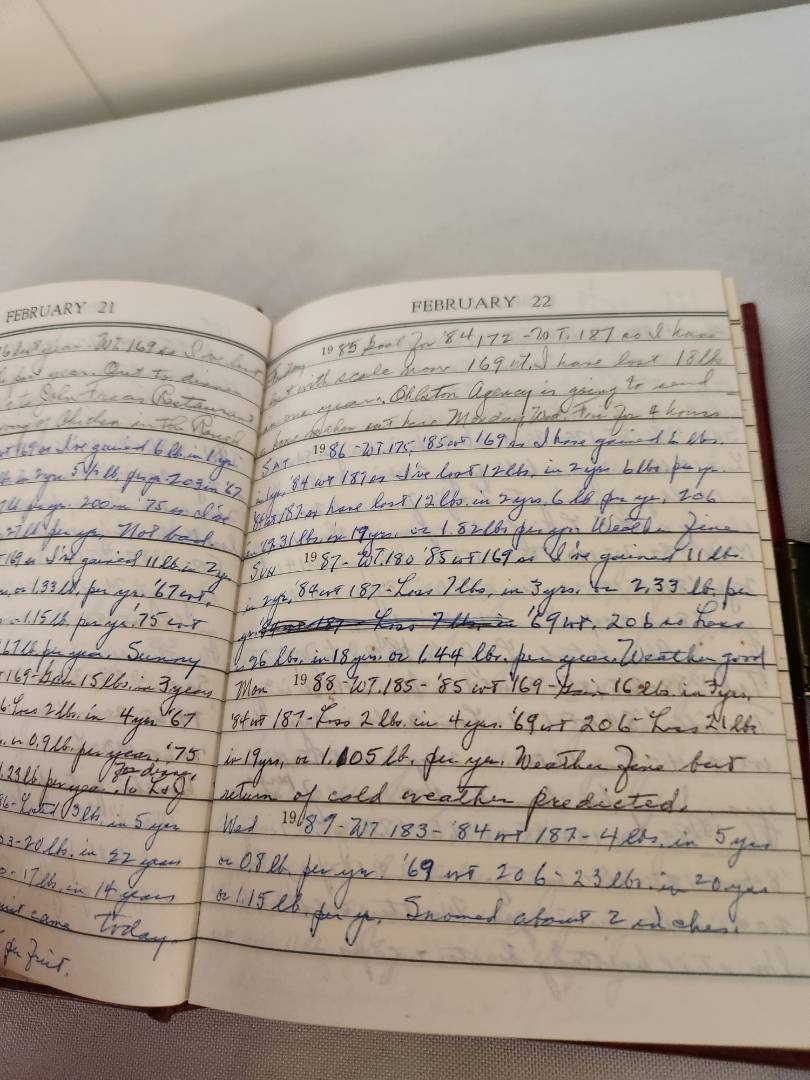 FEBRUARY 21
last year. WT 169 so I've lost
last year. Out to dinner
to John Texas Restaurant
Chicken in the Rough
WT 169 so I've gained 6 lb. in 1 yr.
in 2 yrs. 5 1/2 lb. per yr. 203 in '67
lb per yr. 200 in '75 so I've
lb per yr. Not bad.
169 so I've gained 11 lb. in 2 yr
or 1.33 lb. per yr. '67 wt.
1.15 lb. per yr. '75 wt
67 lb per year. Sunny
169-Gain 15 lbs. in 3 years
Loss 2 lbs. in 4 yrs '67
or 0.9 lb. per year, '75
1.23 lb. per year. to
for dinn.
Lost 3 lbs. in 5 yrs
03-20 lb. in 22 years
0-17 lb. in 14 years
came today.
fruit.
FEBRUARY 22
Friday 1985 Goal for '84, 172 - WT. 187 so I have
lost with scale now 169 wt. I have lost 18 lb
in one year. Agency is going to send
Monday Wed Fri for 4 hours
SAT 1986 - WT. 175, '85 wt 169 so I have gained 6 lbs.
in 1 yr. '84 wt 187 so I've lost 12 lbs. in 2 yrs. 6 lbs per yr.
'84 wt 187 so have lost 12 lbs. in 2 yrs, 6 lb per yr, 206
in 31 lbs. in 19 yrs. or 1.82 lbs per yr. Weather fine
SUN 1987 - WT. 180 '85 wt 169 so I've gained 11 lb.
in 2 yr. '84 wt 187 - Loss 7 lbs, in 3 yrs. or 2.33 lb. per
yr. '84 wt 187 - Loss 7 lbs, in '69 wt. 206 so Loss
26 lbs. in 18 yrs. or 1.44 lbs. per year. Weather good
Mon 1988 - WT. 185 - '85 wt 169 - Gain 16 lbs. in 3 yrs,
'84 wt 187 - Loss 2 lbs. in 4 yrs. '69 wt 206 - Loss 21 lbs
in 19 yrs, or 1.105 lb. per yr. Weather fine but
return of cold weather predicted.
Wed 1989 - WT 183 - '84 wt 187 - 4 lbs. in 5 yrs
or 0.8 lb. per yr. '69 wt 206 - 23 lbs. in 20 yrs
or 1.15 lb. per yr. Snowed about 2 inches.